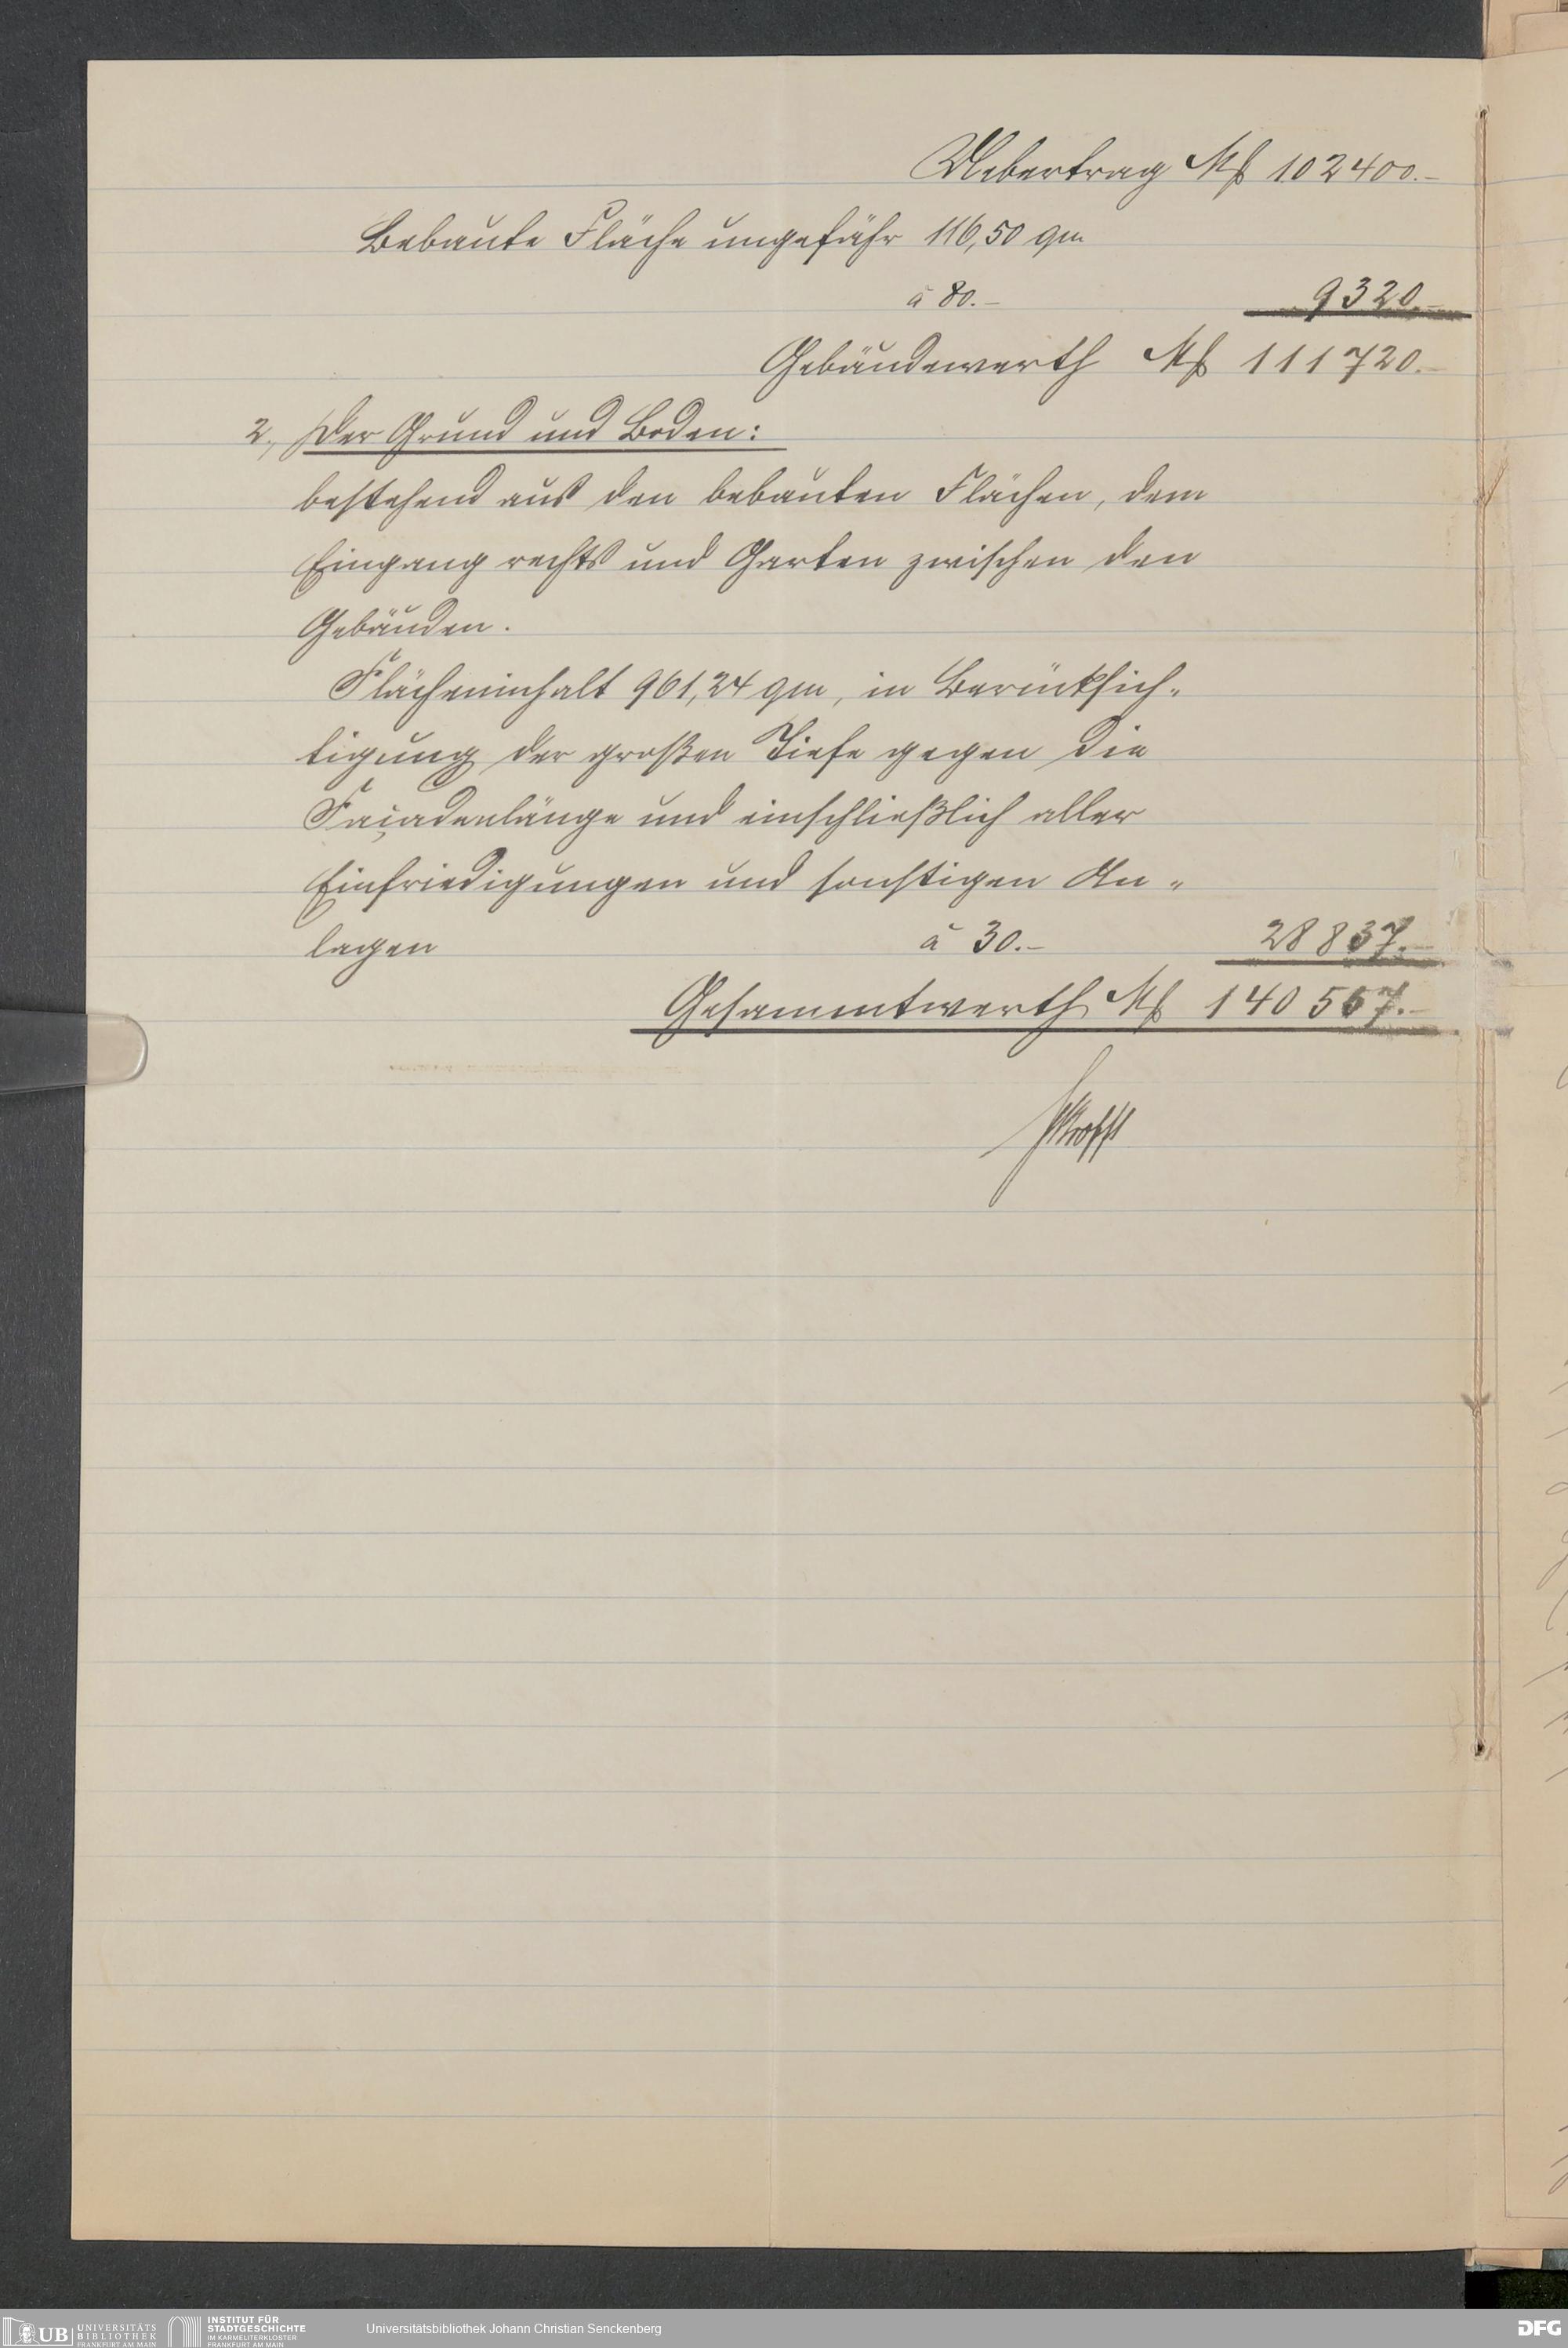 Uebertrag Mk 102400.-
Bebaute Fläche ungefähr 116,50 qm
à 80.- 9320.-
Gebäudewerth Mk 111720.-
2., Der Grund und Boden:
bestehend aus den bebauten Flächen, dem
Eingang rechts und Garten zwischen den
Gebäuden.
Flächeninhalt 961,24 qm, in Berücksich-
tigung der großen Tiefe gegen die
Façadenlänge und einschließlich aller
Einfriedigungen und sonstigen An-
lagen à 30.- 28837.-
Gesammtwerth Mk 140557.-
UB UNIVERSITÄTS
BIBLIOTHEK
FRANKFURT AM MAIN
INSTITUT FÜR
STADTGESCHICHTE
IM KARMELITERKLOSTER
FRANKFURT AM MAIN
Universitätsbibliothek Johann Christian Senckenberg
DFG